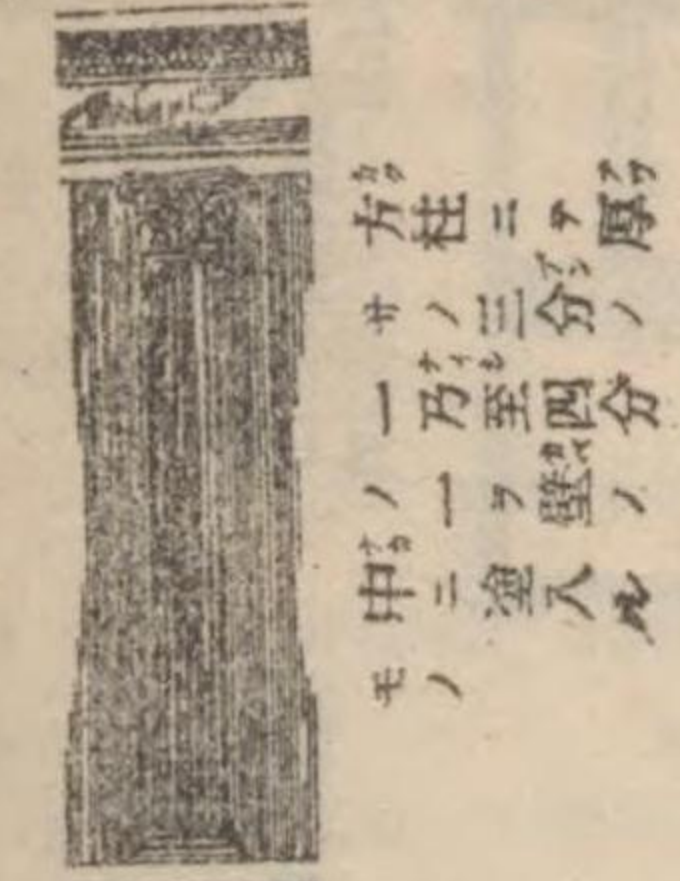 方柱ニテ厚
サノ三分ノ
一乃至四分
ノ一ヲ壁ノ
中ニ塗入ル
モノ